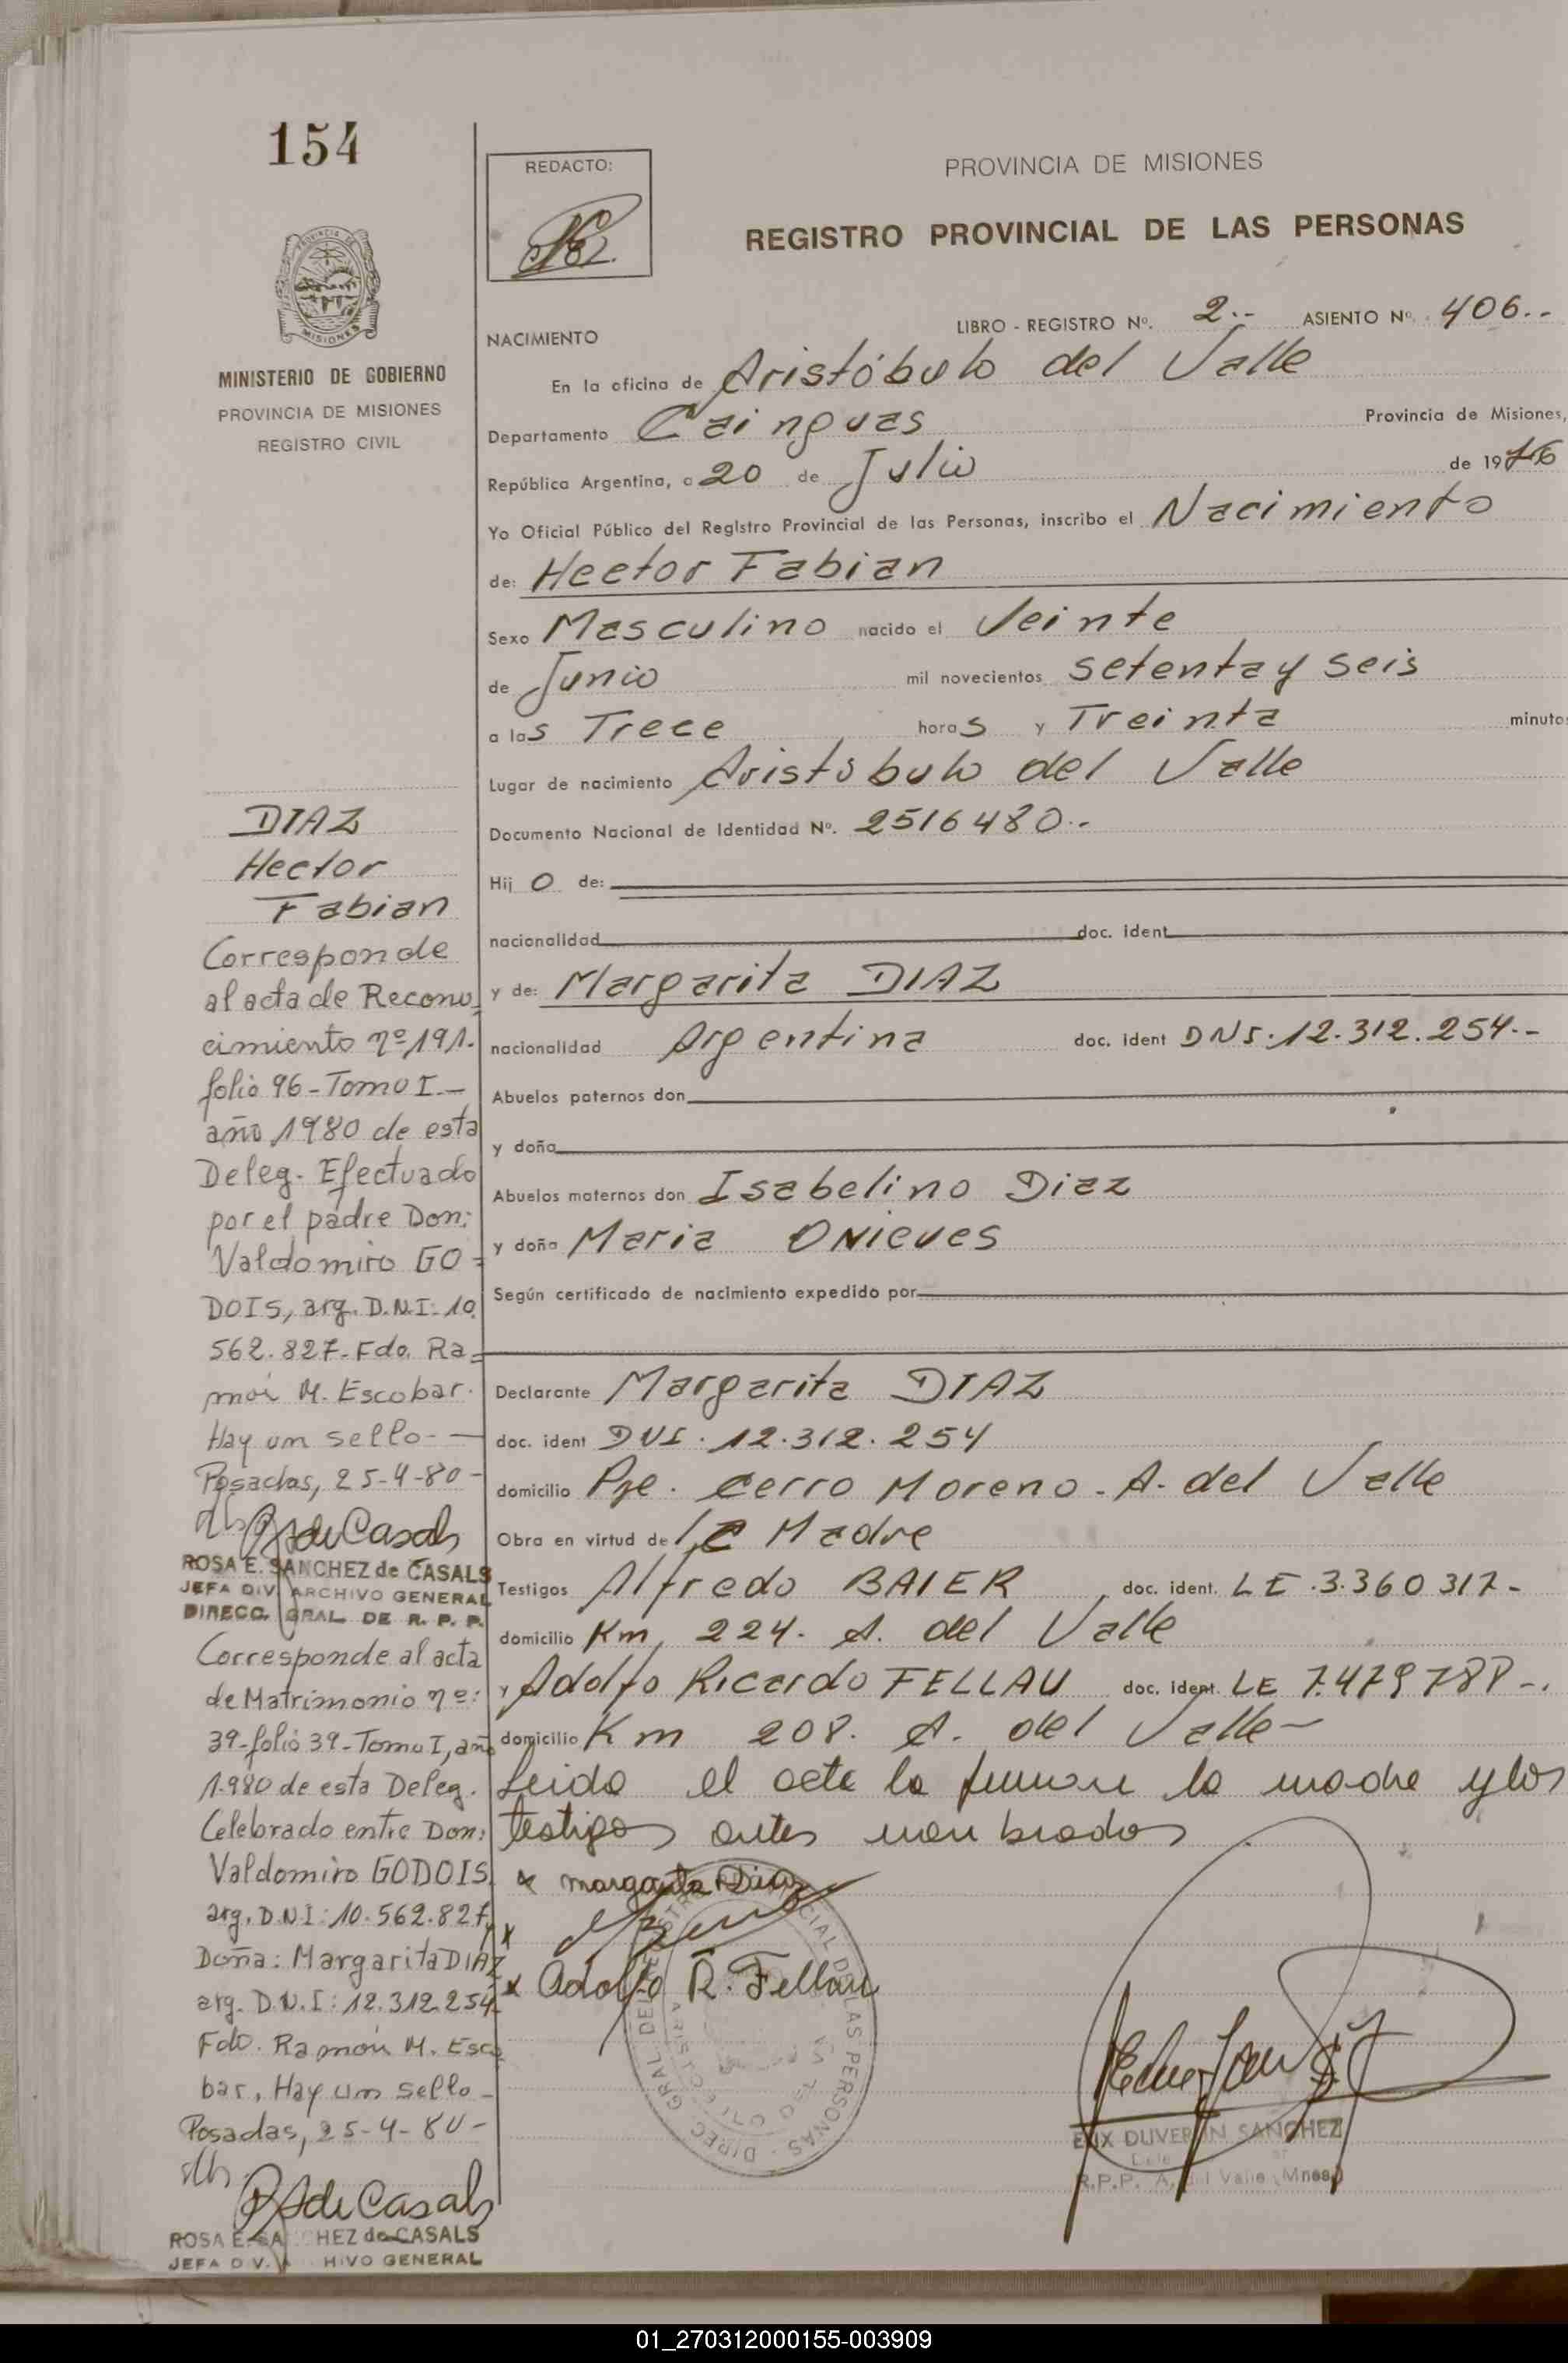 154
REDACTO:
PROVINCIA DE MISIONES
REGISTRO PROVINCIAL DE LAS PERSONAS
PROVINCIA DE
MISIONES
MINISTERIO DE GOBIERNO
PROVINCIA DE MISIONES
REGISTRO CIVIL
LIBRO - REGISTRO Nº. 2.- ASIENTO Nº. 406.-
NACIMIENTO
En la oficina de Aristóbulo del Valle
Departamento Cainguas Provincia de Misiones,
República Argentina, a 20 de Julio de 1976
Yo Oficial Público del Registro Provincial de las Personas, inscribo el Nacimiento
de: Hector Fabian
Sexo Masculino nacido el Veinte
de Junio mil novecientos setenta y seis
a las Trece horas y Treinta minutos
Lugar de nacimiento Aristobulo del Valle
Documento Nacional de Identidad Nº. 2516480.-
Hijo de:
nacionalidad doc. ident
y de: Margarita DIAZ
nacionalidad Argentina doc. ident DNI. 12.312.254.-
Abuelos paternos don
y doña
Abuelos maternos don Isabelino Diaz
y doña Maria ONIEVES
Según certificado de nacimiento expedido por
Declarante Margarita DIAZ
doc. ident DNI. 12.312.254
domicilio Pje. Cerro Moreno - A. del Valle
Obra en virtud de La Madre
Testigos Alfredo BAIER doc. ident. LE.3.360317-
domicilio Km, 224. A. del Valle
y Adolfo Ricardo FELLAU doc. ident. LE 7.479788-.
domicilio Km 208. A. del Valle-
Leida el acta la firman la madre y los
testigos antes nombrados
x margarita Diaz
x
x Adolfo R. Fellau
DIREC. GRAL. DEL REGISTRO PROVINCIAL DE LAS PERSONAS
R.P.P. A. del Valle (Mnes)
DIAZ
Hector
Fabian
Corresponde
al acta de Recono-
cimiento nº 191.
folio 96-Tomo I.-
año 1980 de esta
Deleg. Efectuado
por el padre Don:
Valdomiro GO=
DOIS, arg. D.N.I: 10.
562.827-Fdo. Ra=
món M. Escobar.
Hay un sello-
Posadas, 25-4-80-
RSdeCasals
ROSA E. SANCHEZ de CASALS
JEFA DIV. ARCHIVO GENERAL
DIRECC. GRAL. DE R. P. P.
Corresponde al acta
de Matrimonio nº:
39-folio 39-Tomo I, año
1.980 de esta Deleg.
Celebrado entre Don:
Valdomiro GODOIS,
arg. D.N.I: 10.562.827, y
Doña: Margarita DIAZ
arg. D.N.I: 12.312.254
Fdo. Ramón M. Esco
bar, Hay un sello-
Posadas, 25-4-80-
RSdeCasals
ROSA E. SANCHEZ de CASALS
JEFA DIV. ARCHIVO GENERAL
01_270312000155-003909